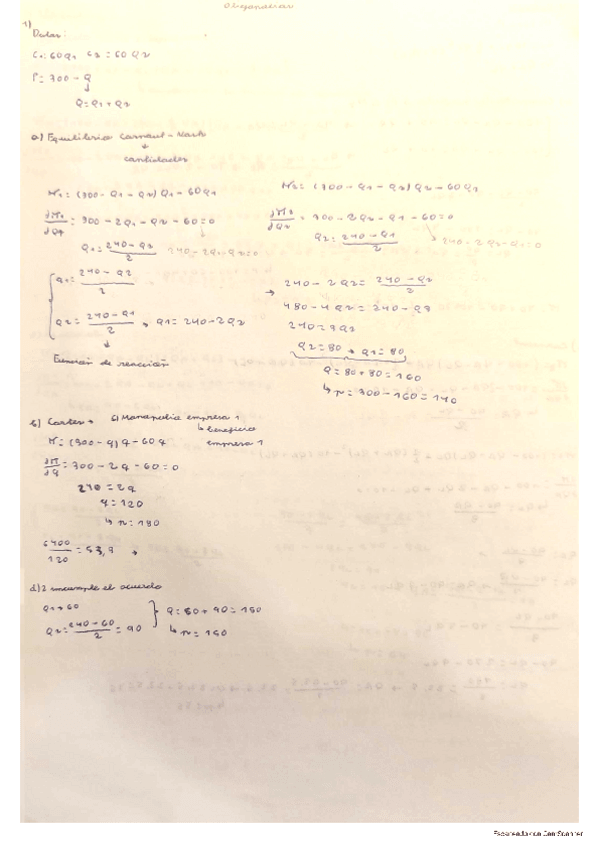 1)
Datos:
C1=60q1 C2=60q2
P=300-Q
Q=q1+q2
a) Equilibrio Cournot-Nash
cantidades
π1=(300-q1-q2)q1-60q1
π2=(300-q1-q2)q2-60q2
∂π1/∂q1=300-2q1-q2-60=0
∂π2/∂q2=300-2q2-q1-60=0
q1=(240-q2)/2 240-2q1-q2=0
q2=(240-q1)/2 240-2q2-q1=0
q1=(240-q2)/2
q2=(240-q1)/2 → q1=240-2q2
Función de reacción
→ 240-2q2=(240-q2)/2
480-4q2=240-q2
240=3q2
q2=80 → q1=80
Q=80+80=160
↳ p=300-160=140
b) Cartel → c) Monopolio empresa 1
↳ beneficio
empresa 1
π=(300-q)q-60q
∂π/∂q=300-2q-60=0
240=2q
q=120
↳ p=180
6400/120=53,3 →
d) 2 incumple el acuerdo
q1=60
q2=(240-60)/2=90
Q=60+90=150
↳ p=150
Escaneado con CamScanner